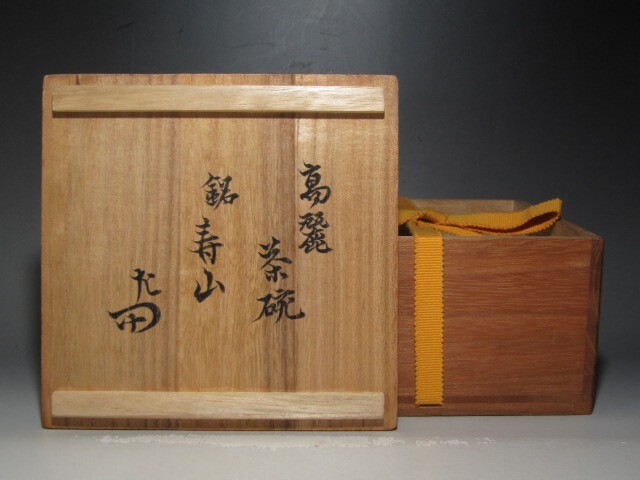 高麗
茶碗
銘 寿山